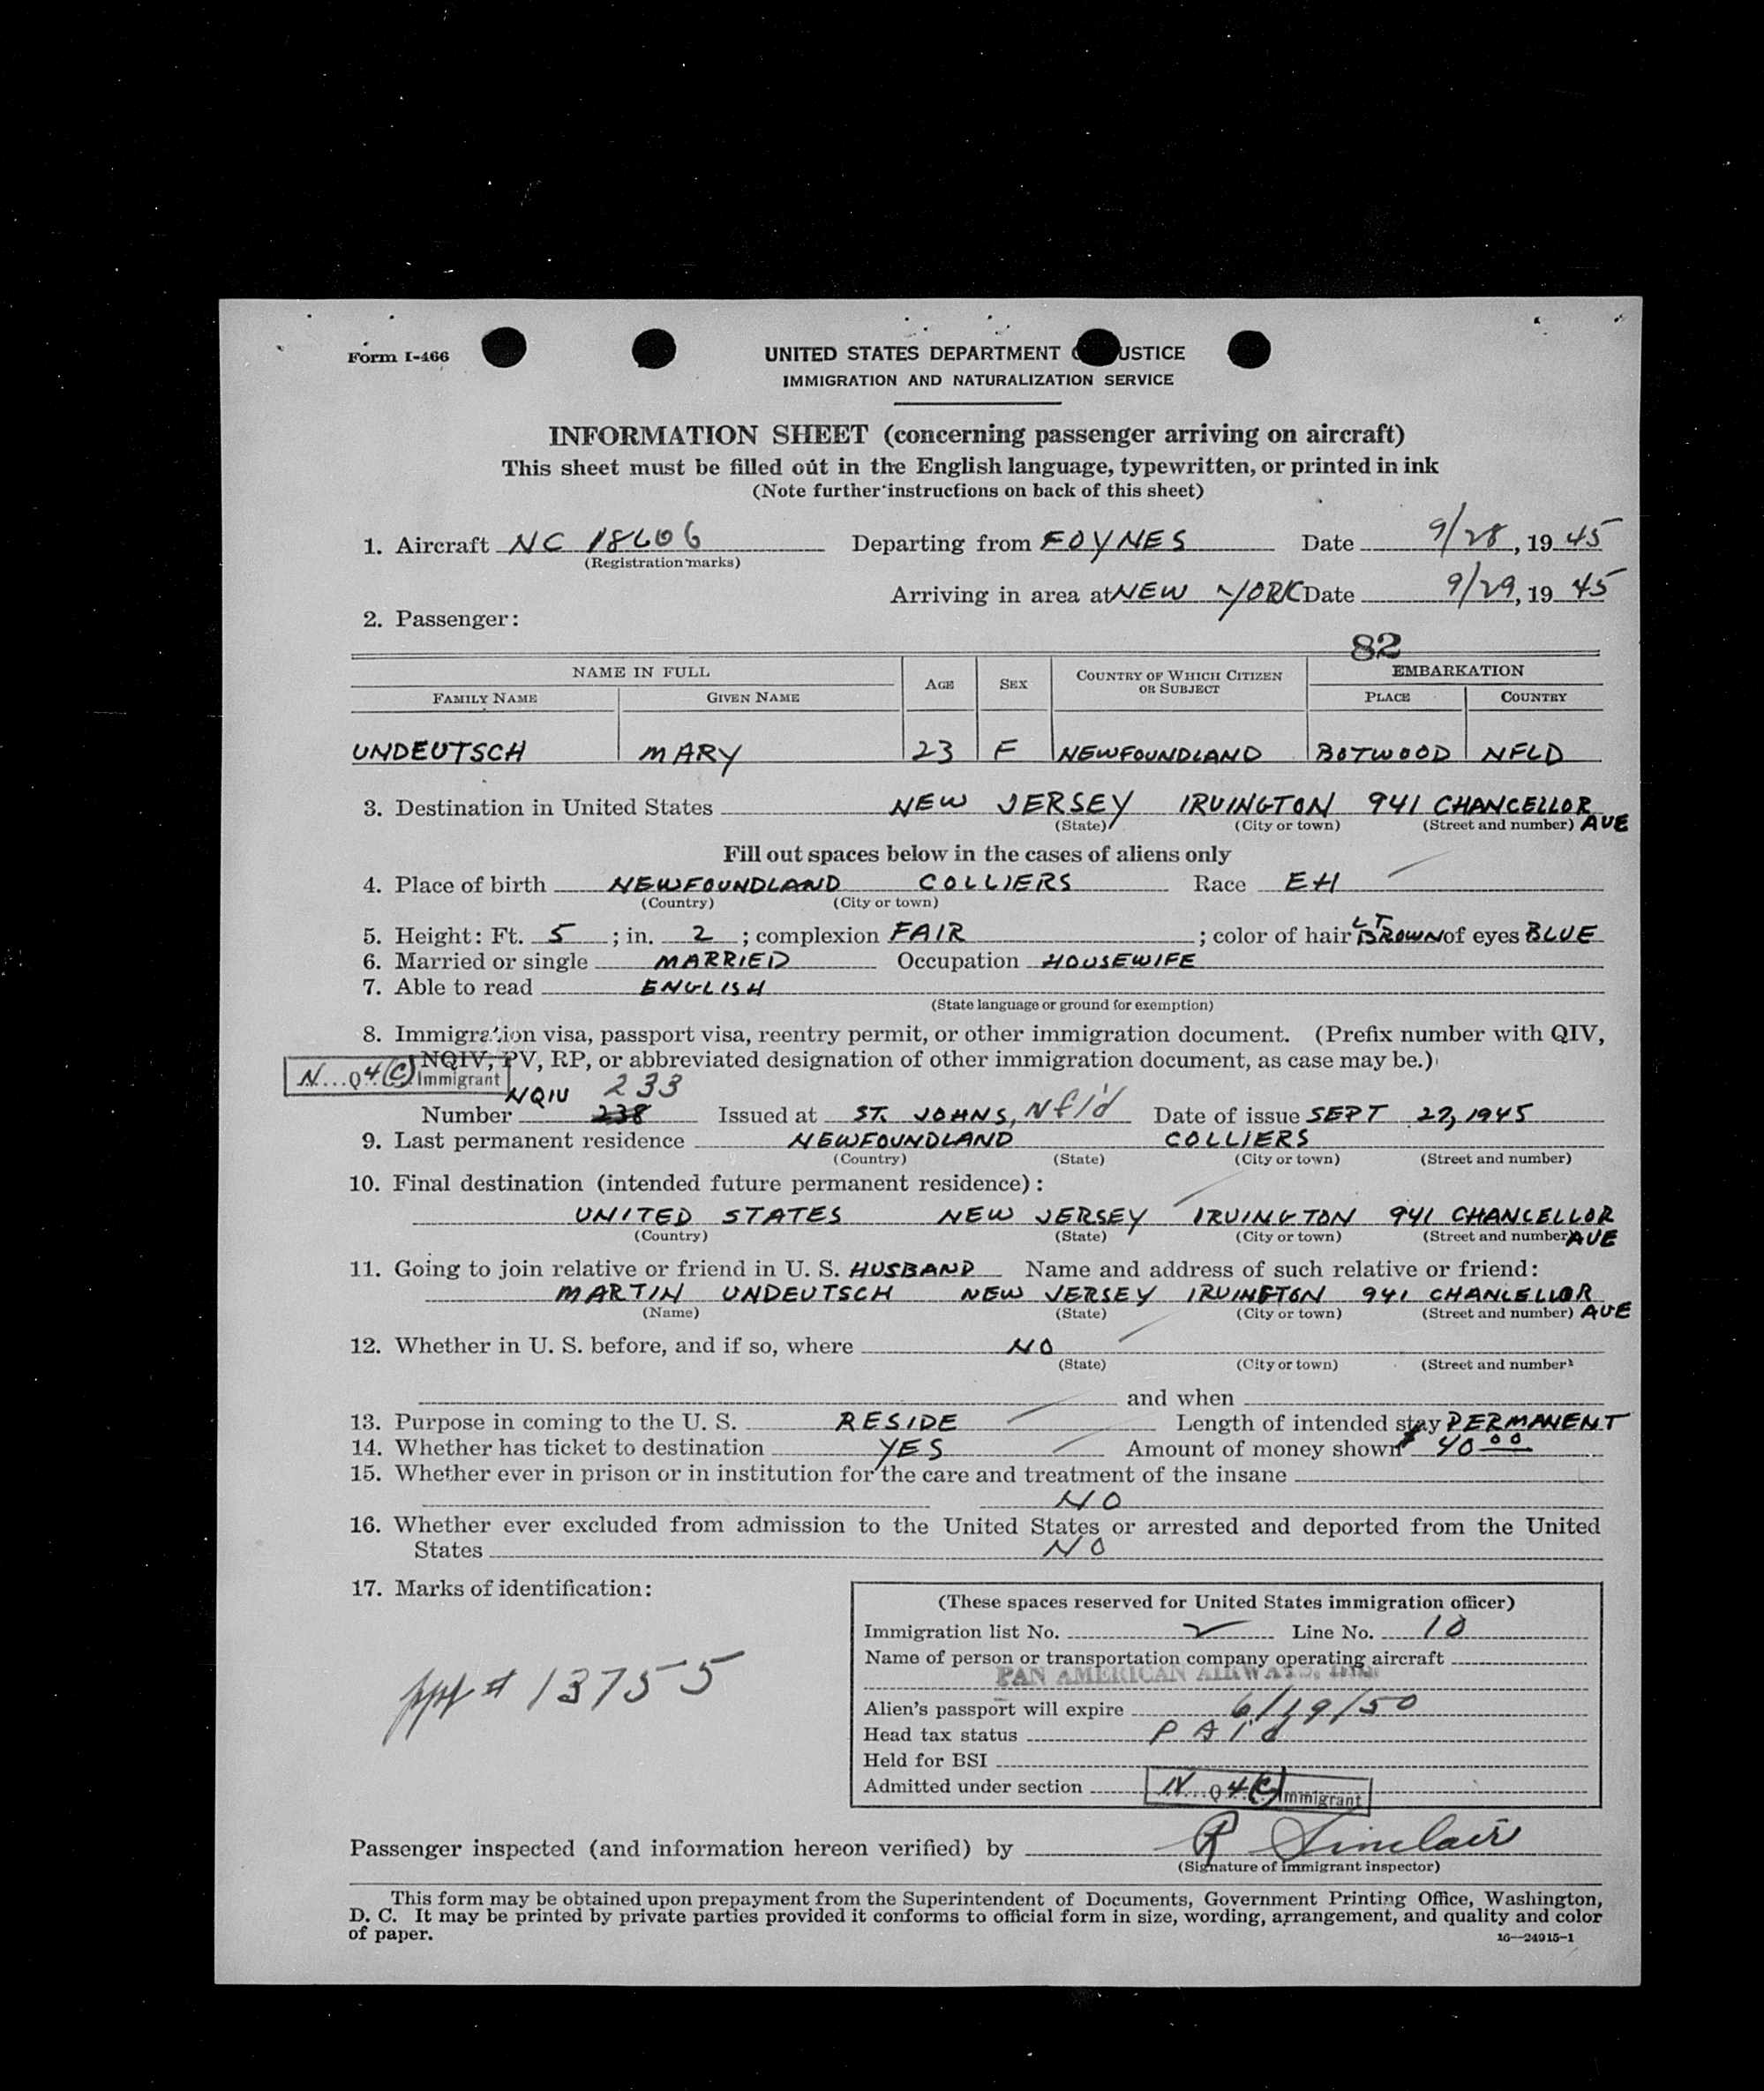 Form I-466
UNITED STATES DEPARTMENT USTICE
IMMIGRATION AND NATURALIZATION SERVICE
INFORMATION SHEET (concerning passenger arriving on aircraft)
This sheet must be filled out in the English language, typewritten, or printed in ink
(Note further instructions on back of this sheet)
1. Aircraft NC 18606 Departing from FOYNES Date 9/28, 19 45
(Registration marks)
Arriving in area at NEW YORK Date 9/29, 19 45
2. Passenger:
82
NAME IN FULL AGE SEX COUNTRY OF WHICH CITIZEN OR SUBJECT EMBARKATION
FAMILY NAME GIVEN NAME PLACE COUNTRY
UNDEUTSCH MARY 23 F NEWFOUNDLAND BOTWOOD NFLD
3. Destination in United States NEW JERSEY IRVINGTON 941 CHANCELLOR AVE
(State) (City or town) (Street and number)
Fill out spaces below in the cases of aliens only
4. Place of birth NEWFOUNDLAND COLLIERS Race EH
(Country) (City or town)
5. Height: Ft. 5 ; in. 2 ; complexion FAIR ; color of hair LT BROWN of eyes BLUE
6. Married or single MARRIED Occupation HOUSEWIFE
7. Able to read ENGLISH
(State language or ground for exemption)
8. Immigration visa, passport visa, reentry permit, or other immigration document. (Prefix number with QIV,
NQIV, PV, RP, or abbreviated designation of other immigration document, as case may be.)
N...Q 4(C) Immigrant
NQIV 233
Number 238 Issued at ST. JOHNS, Nf'l'd Date of issue SEPT 27, 1945
9. Last permanent residence NEWFOUNDLAND COLLIERS
(Country) (State) (City or town) (Street and number)
10. Final destination (intended future permanent residence):
UNITED STATES NEW JERSEY IRVINGTON 941 CHANCELLOR AVE
(Country) (State) (City or town) (Street and number)
11. Going to join relative or friend in U. S. HUSBAND Name and address of such relative or friend:
MARTIN UNDEUTSCH NEW JERSEY IRVINGTON 941 CHANCELLOR AVE
(Name) (State) (City or town) (Street and number)
12. Whether in U. S. before, and if so, where NO
(State) (City or town) (Street and number)
and when
13. Purpose in coming to the U. S. RESIDE Length of intended stay PERMANENT
14. Whether has ticket to destination YES Amount of money shown $ 40 00
15. Whether ever in prison or in institution for the care and treatment of the insane
NO
16. Whether ever excluded from admission to the United States or arrested and deported from the United
States NO
17. Marks of identification:
ppt # 13755
(These spaces reserved for United States immigration officer)
Immigration list No. 2 Line No. 10
Name of person or transportation company operating aircraft
PAN AMERICAN AIRWAYS, INC.
Alien's passport will expire 6/19/50
Head tax status PAid
Held for BSI
Admitted under section N...Q 4(C) Immigrant
Passenger inspected (and information hereon verified) by R Sinclair
(Signature of immigrant inspector)
This form may be obtained upon prepayment from the Superintendent of Documents, Government Printing Office, Washington,
D. C. It may be printed by private parties provided it conforms to official form in size, wording, arrangement, and quality and color
of paper.
16—24915-1